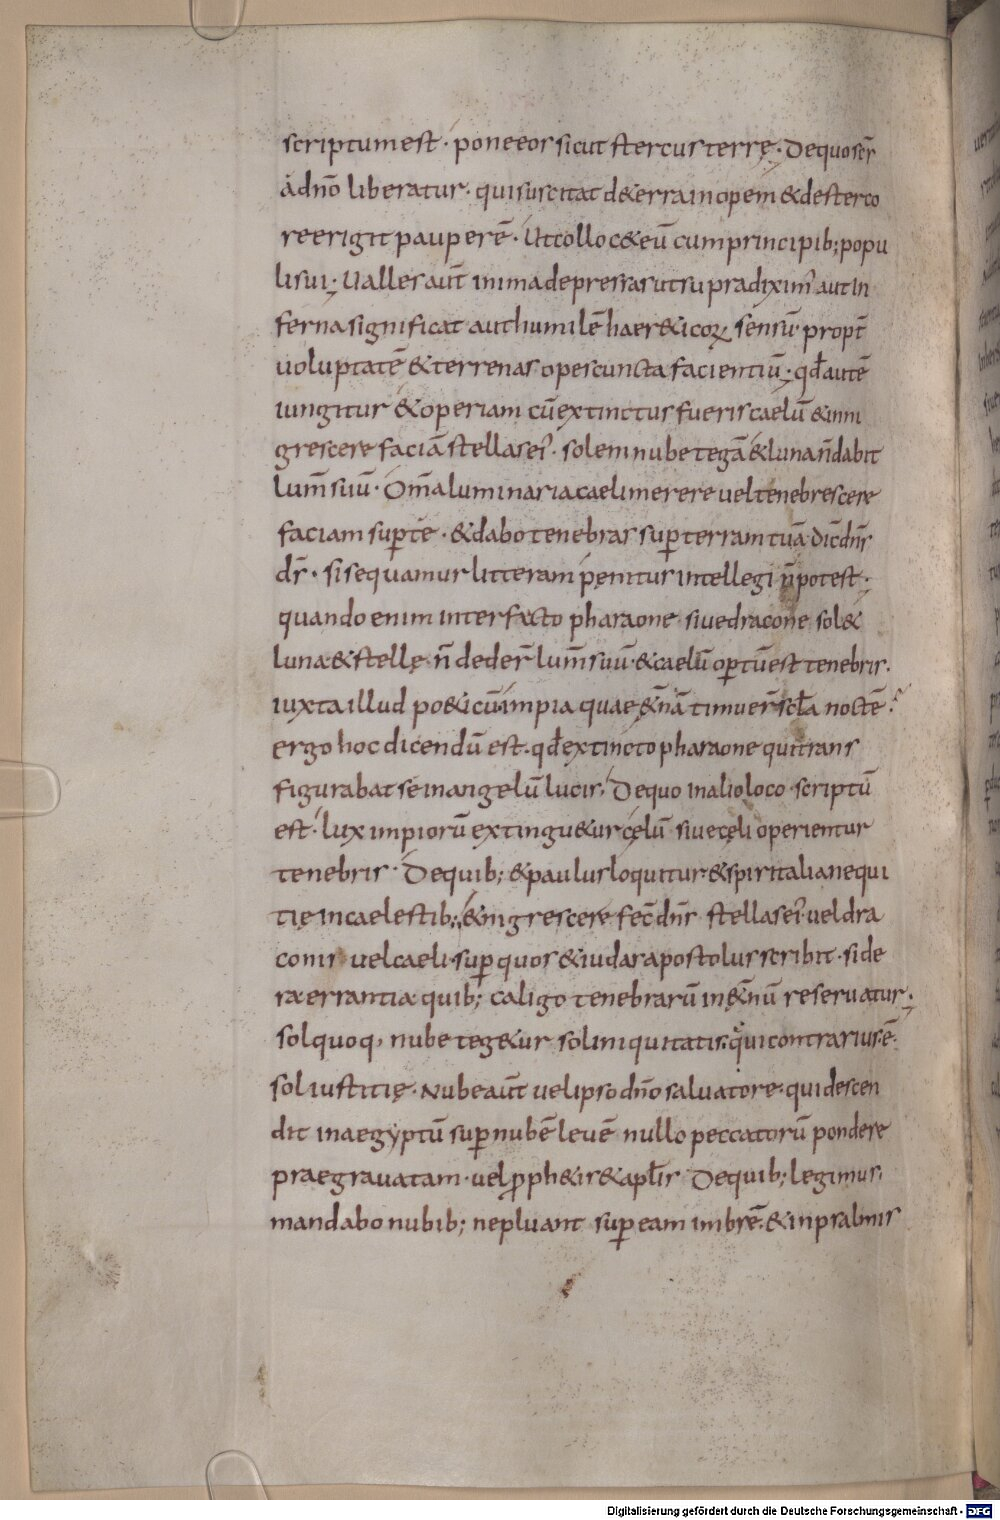 scriptum est · pone eos sicut stercus terrę · De quo scr̄
A dn̄o liberatur · qui suscitat de terra inopem & de sterco
re erigit pauperē · Ut colloc& eū cum principib; popu
li sui · Ualles aut̄ in ima depressas ut supra dixim' aut in
ferna significat aut humilē haer&icoꝝ sensū · propt̄
uoluptatē & terrenas opes cuncta facientiū · qđ autē
iungitur & operiam cū extinctus fueris caelū & ini
grescere faciā stellas ei' · solem nube tegā & luna n̄ dabit
lum̄ suū · Om̄a luminaria caeli merere uel tenebrescere
faciam sup̄ te · & dabo tenebras sup̄ terram tuā dic̄ dn̄s
ds̄ · si sequamur litteram pęnitus intellegi n̄ potest ·
quando enim interfecto pharaone siue dracone sol &
luna & stellę n̄ deder̄ lum̄ suū · & caelū op̄tū est tenebris ·
iuxta illud po&icū impia quae &n̄ā timuer̄ scl̄a noctē ·
ergo hoc dicendū est · qđ extincto pharaone qui trans
figurabat se in angelū lucis · De quo in alio loco scriptū
est · lux impiorū extingu&ur cęlū siue cęli operientur
tenebris · De quib; & paulus loquitur & spiritalia nequi
tię in caelestib; & nigrescere fec̄ dn̄s stellas ei' uel dra
conis uel caeli · sup̄ quos & iudas apostolus scribit · side
ra errantia quib; caligo tenebrarū in &n̄ū reseruatur ·
sol quoq, nube teg&ur sol iniquitatis · qui contrarius ē ·
sol iustitię · Nube aut̄ uel ipso dn̄o saluatore · qui descen
dit in aegyptū sup̄ nubē leuē nullo peccatorū pondere
praegrauatam · uel ꝓph&is & apl̄is De quib; legimus ·
mandabo nubib; ne pluant sup̄ eam imbrē · & in psalmis
Digitalisierung gefördert durch die Deutsche Forschungsgemeinschaft - DFG